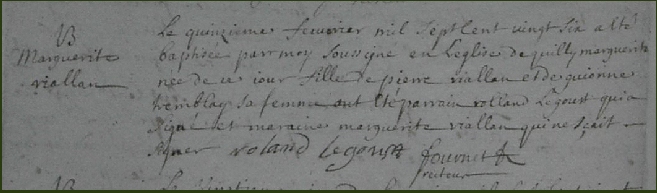 B
Marguerite
viallan
Le quinzieme feuvrier mil sept cent vingt six a esté
baptisée par moy soussigné en Leglise de quilly marguerite
née de ce jour fille de pierre viallan et de guionne
tremblay sa femme ont esté parrain rolland Legoust qui a
signé et maraine marguerite viallan qui ne sçait
signer roland legoust fournet
recteur